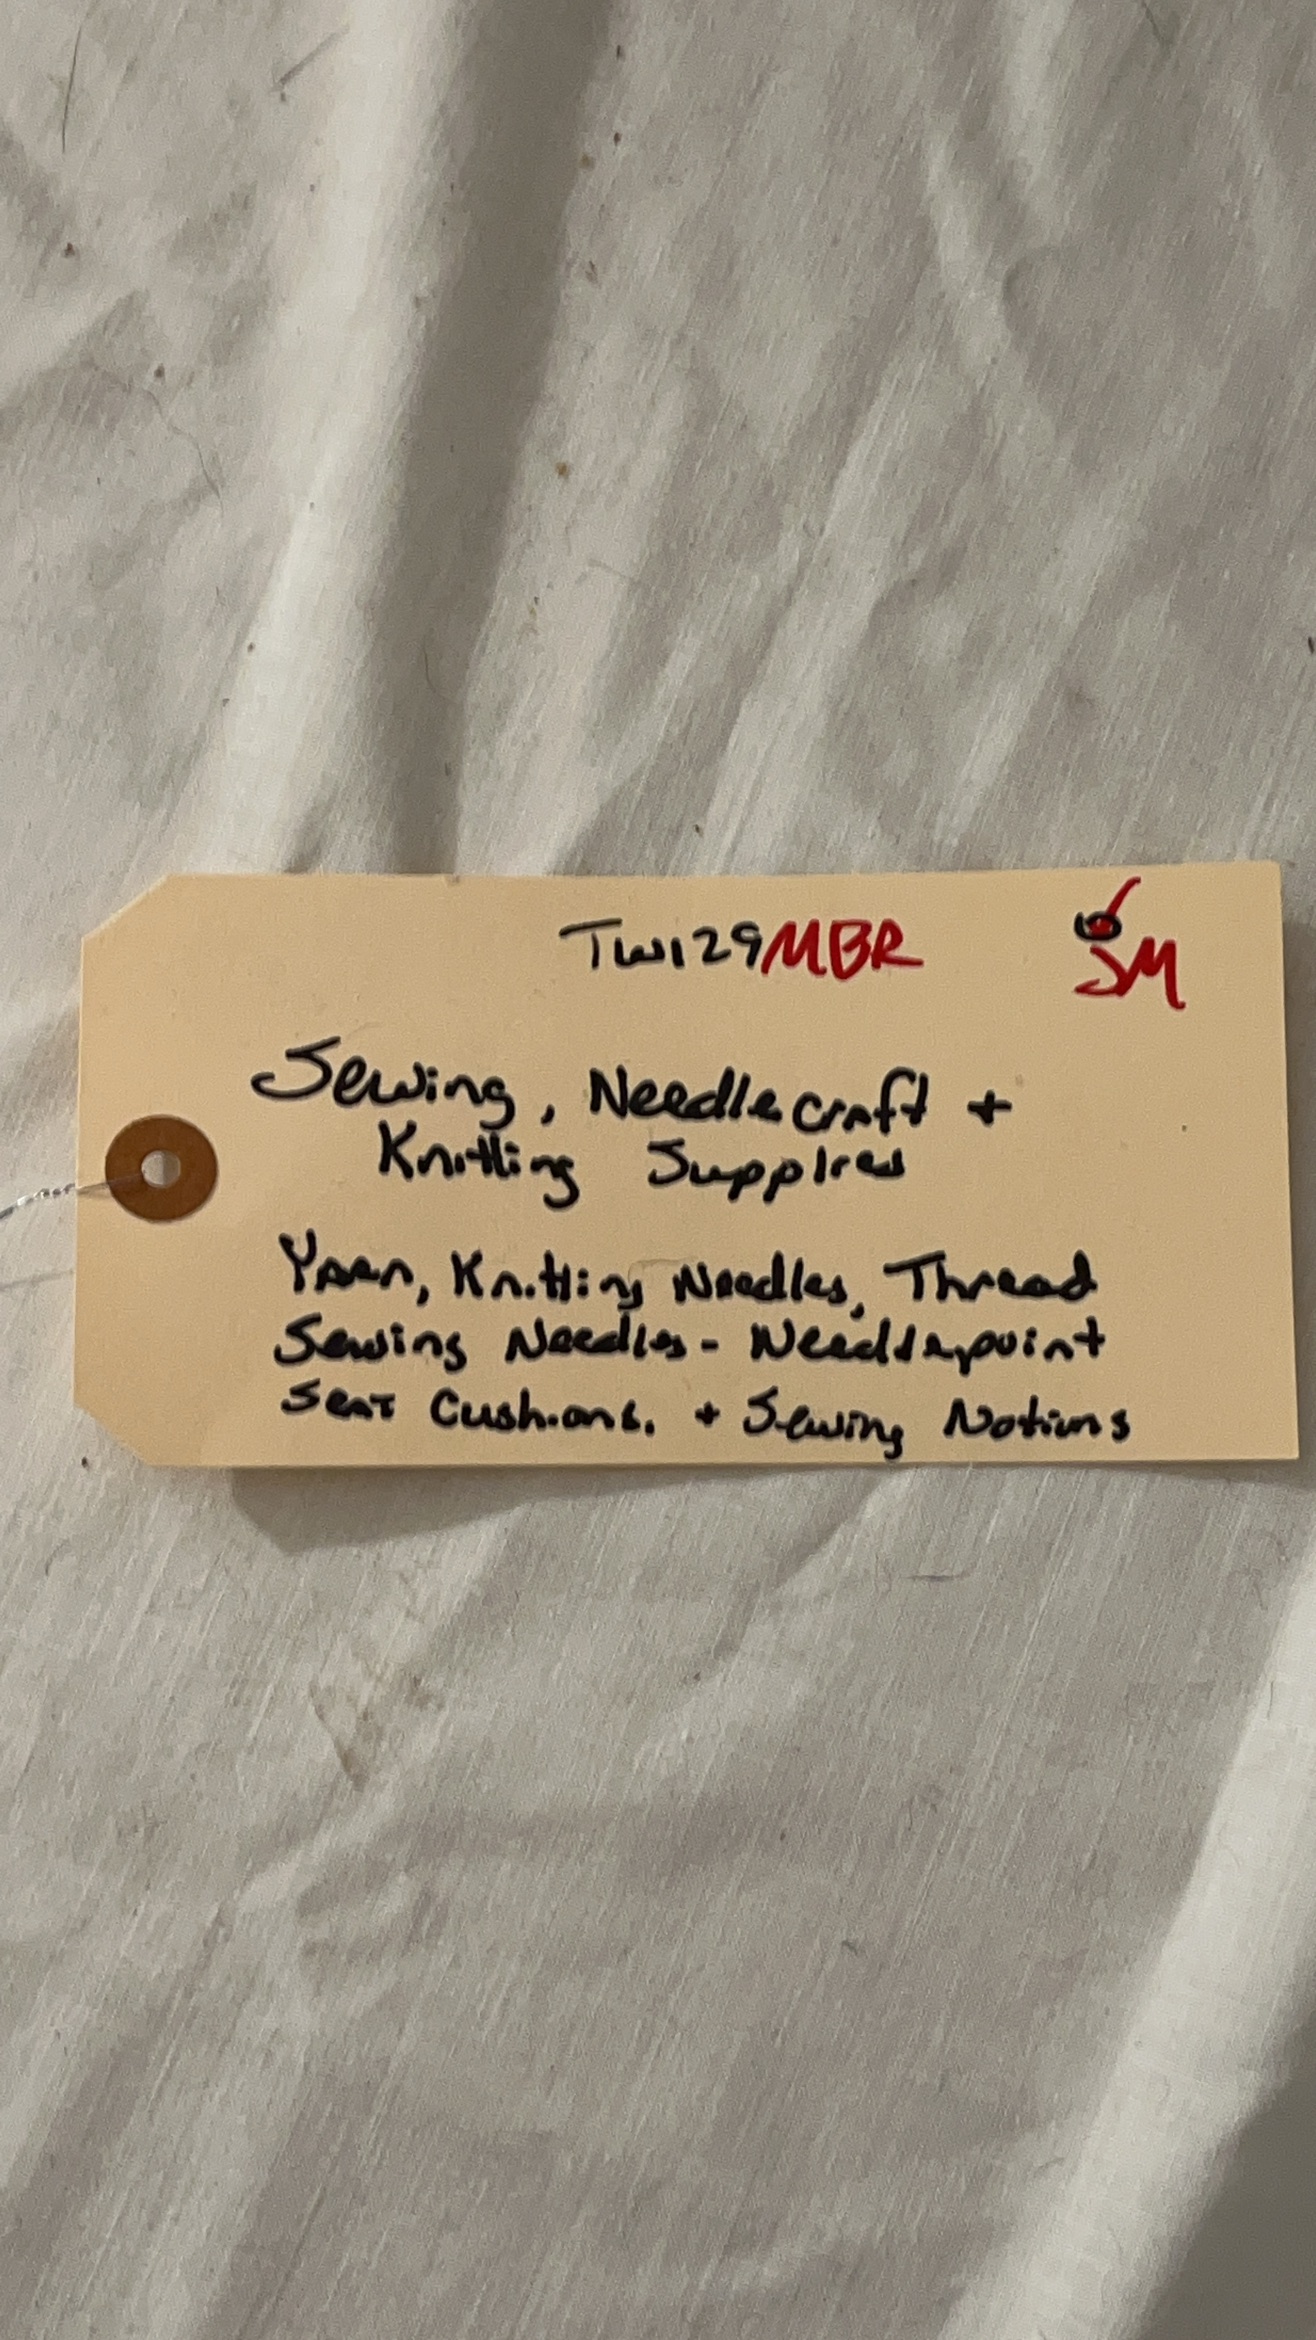 TW129MBR
SM
Sewing, Needlecraft +
Knitting Supplies
Yarn, Knitting Needles, Thread
Sewing Needles - Needlepoint
Seat Cushions. + Sewing Notions